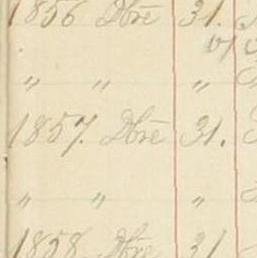 1856 Dbre 31.
" " "
1857. Dbre 31.
" " "
1858 Dbre 31